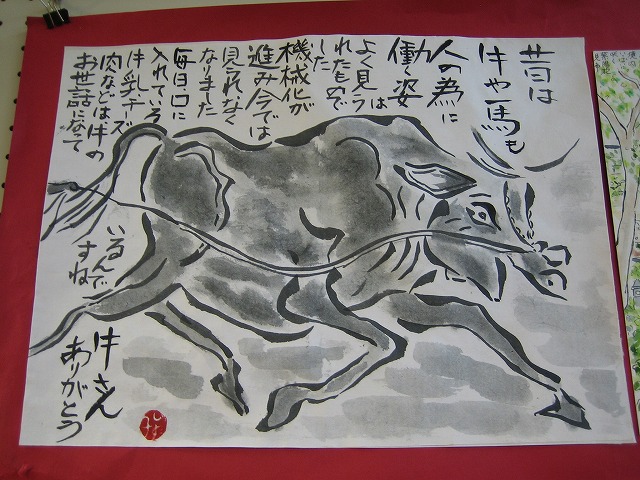 昔は
牛や馬も
人の為に
働く姿は
よく見う
れたもので
した
機械化が
進み今では
見られなく
なりました
毎日口に
入れている
牛乳チーズ
肉などは牛の
お世話になて
いるんで
すね
牛さん
ありがとう